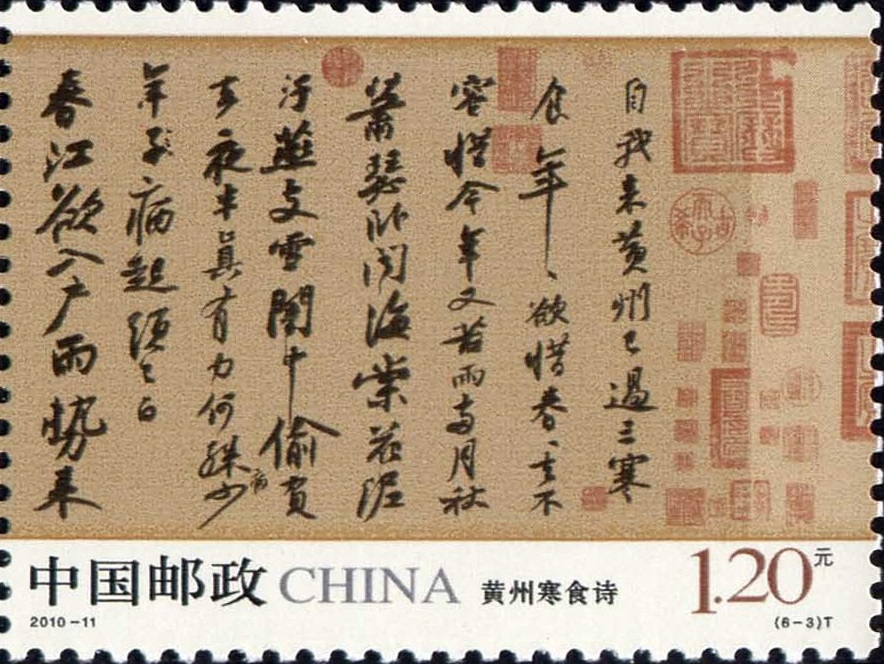 自我来黄州已過三寒
食年〻欲惜春〻去不
容惜今年又苦雨兩月秋
蕭瑟卧聞海棠花泥
汙燕支雪闇中偷負
去夜半真有力何殊少病
年子病起須已白
春江欲入户雨勢来
中国邮政 CHINA 黄州寒食诗 1.20元
2010-11 (6-3)T